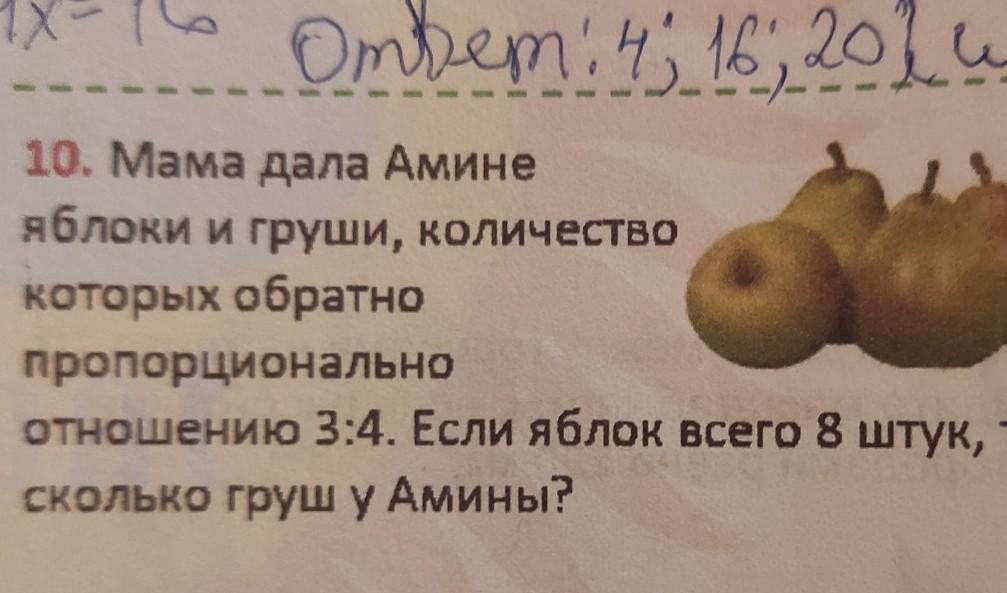 x = 16
Ответ: 4; 16; 20
10. Мама дала Амине
яблоки и груши, количество
которых обратно
пропорционально
отношению 3:4. Если яблок всего 8 штук,
сколько груш у Амины?